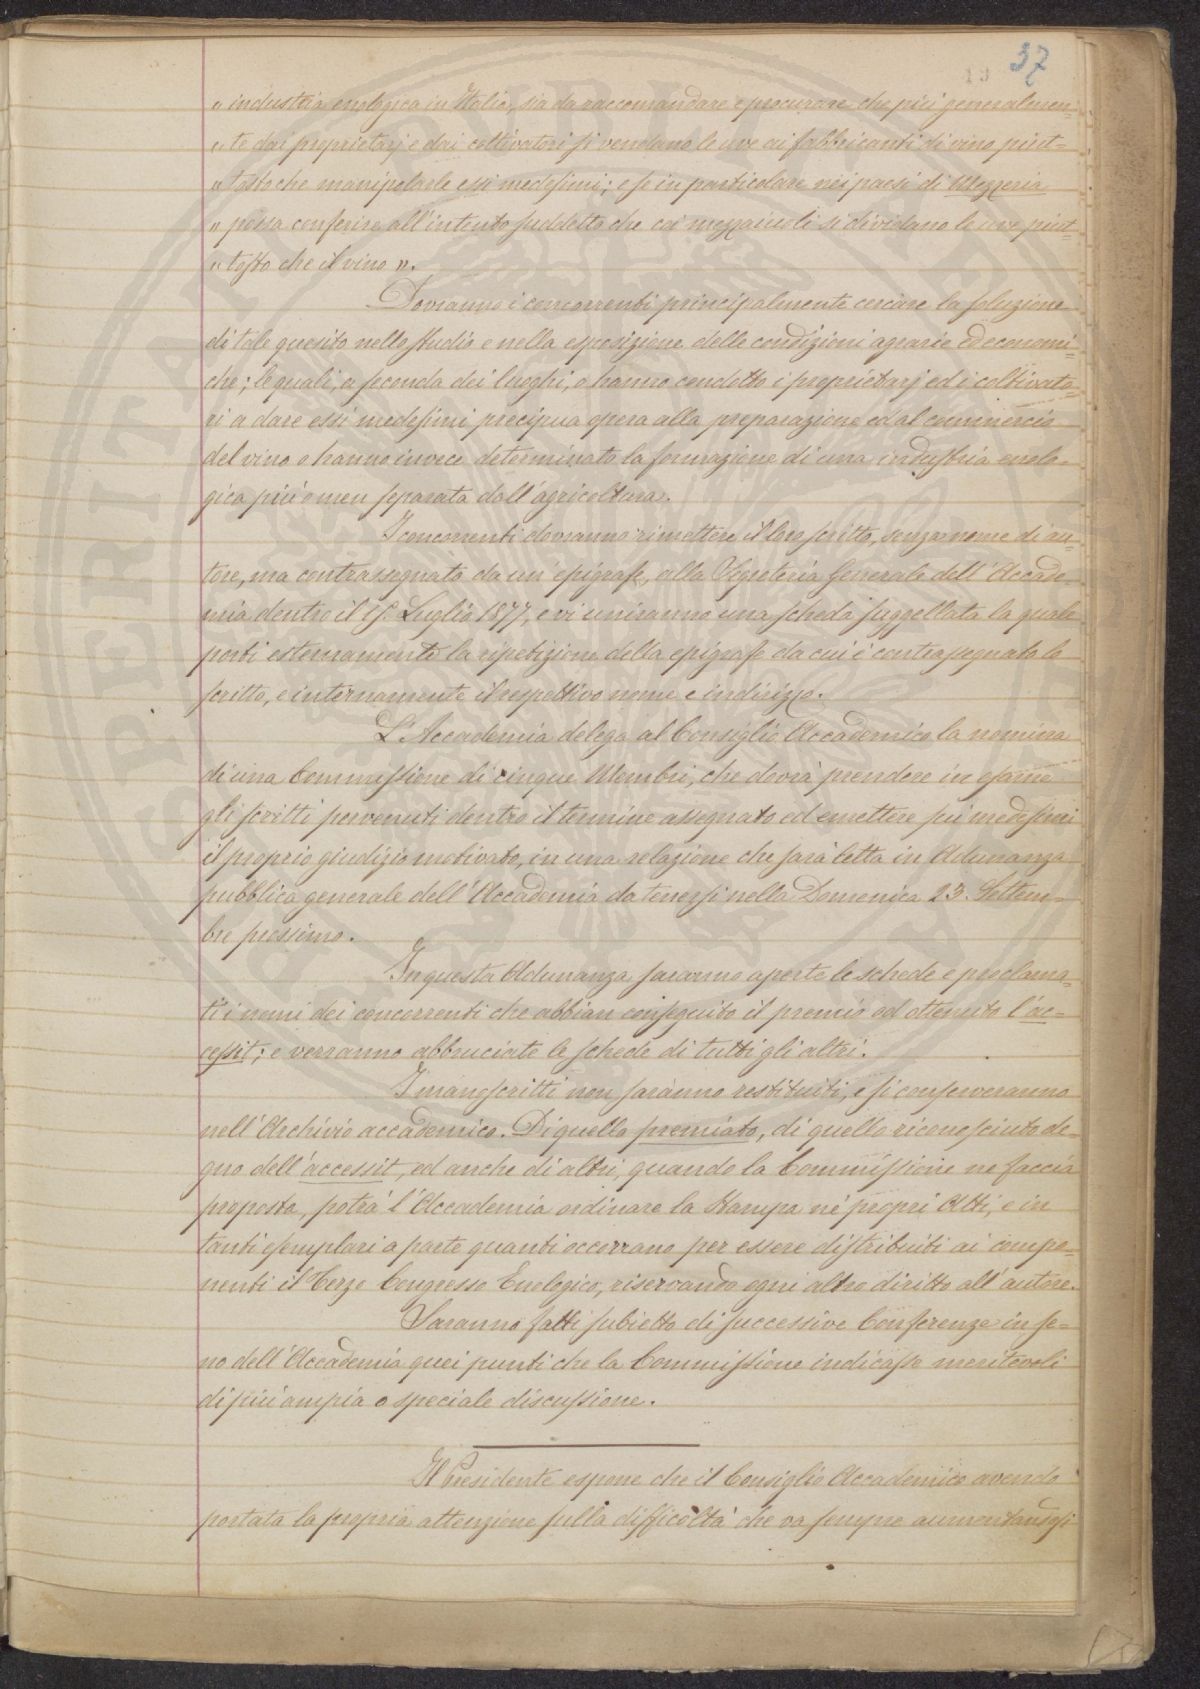 37
« industria enologica in Italia, sia da raccomandare e procurare che più generalmen-
« te dai proprietarj e dai coltivatori si vendano le uve ai fabbricanti di vino piut-
« tosto che manipolarle essi medesimi; e se in particolare nei paesi di Mezzeria
« possa conferire all'intento suddetto che coi mezzaiuoli si dividano le uve piut-
« tosto che il vino ».
Dovranno i concorrenti principalmente cercare la soluzione
di tale quesito nello studio e nella esposizione delle condizioni agrarie ed economi-
che; le quali, a seconda dei luoghi, o hanno condotto i proprietarj ed i coltivato-
ri a dare essi medesimi precipua opera alla preparazione ed al commercio
del vino o hanno invece determinato la formazione di una industria enolo-
gica più o men separata dall'agricoltura.
I concorrenti dovranno rimettere il loro scritto, senza nome di au-
tore, ma contrassegnato da un'epigrafe, alla Segreteria Generale dell'Accade-
mia dentro il Luglio 1877, e vi uniranno una scheda suggellata la quale
porti esternamente la ripetizione della epigrafe da cui è contrassegnato lo
scritto, e internamente il respettivo nome e indirizzo.
L'Accademia delega al Consiglio Accademico la nomina
di una Commissione di cinque Membri, che dovrà prendere in esame
gli scritti pervenuti dentro il termine assegnato ed emettere sui medesimi
il proprio giudizio motivato, in una relazione che sarà letta in Adunanza
pubblica generale dell'Accademia da tenersi nella Domenica 23. Settem-
bre prossimo.
In questa Adunanza saranno aperte le schede e proclama-
ti i nomi dei concorrenti che abbian conseguito il premio od ottenuto l'ac-
cessit; e verranno abbruciate le schede di tutti gli altri.
I manoscritti non saranno restituiti, e si conserveranno
nell'Archivio accademico. Di quello premiato, di quello riconosciuto de-
gno dell'accessit, ed anche di altri, quando la Commissione ne faccia
proposta, potrà l'Accademia ordinare la stampa nè propri Atti, e in
tanti esemplari a parte quanti occorrano per essere distribuiti ai compo-
nenti il Terzo Congresso Enologico, riservando ogni altro diritto all'autore.
Saranno fatti subietto di successive Conferenze in se-
no dell'Accademia quei punti che la Commissione indicasse meritevoli
di più ampia o speciale discussione.
Il Presidente espone che il Consiglio Accademico avendo
portata la propria attenzione sulla difficoltà che va sempre aumentandosi